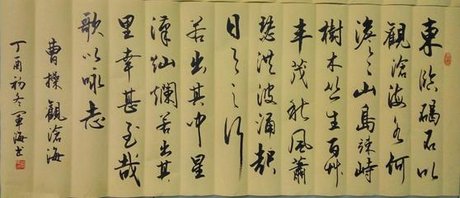 東臨碣石以
觀滄海水何
澹〻山島竦峙
樹木丛生百草
丰茂秋風蕭
瑟洪波涌起
日月之行
若出其中星
漢灿爛若出其
里幸甚至哉
歌以咏志
曹操觀滄海
丁酉初冬军海书